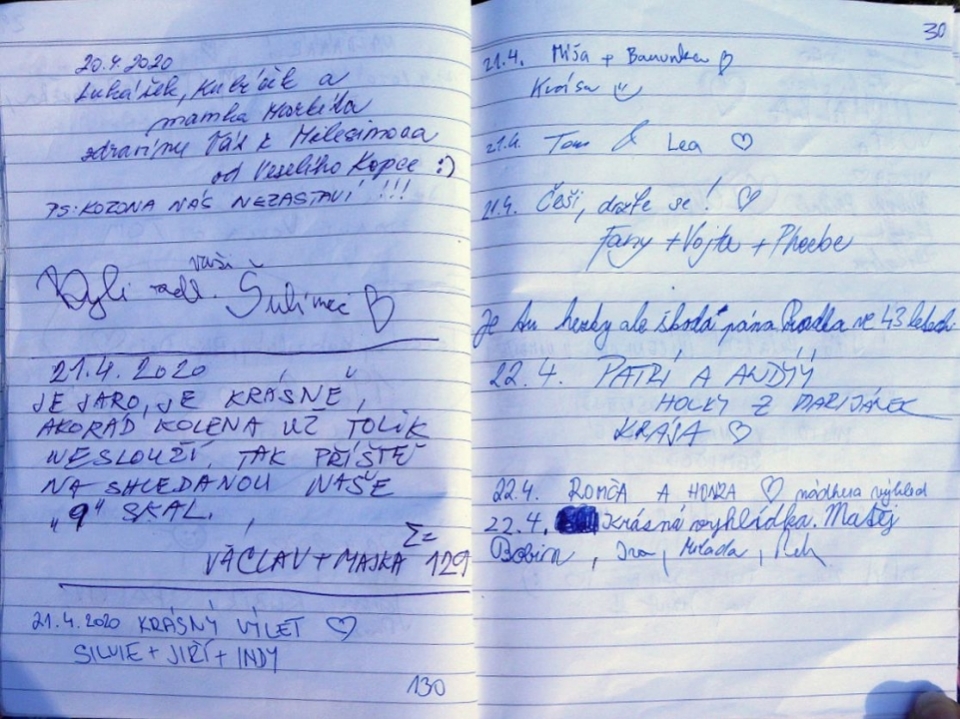 20.4.2020
Lukášek, Kubíček a
mamka Markéta
zdravíme Vás z
od Veselého Kopce :)
PS: KORONA NÁS NEZASTAVÍ !!!
Byli vaši
21.4.2020
JE JARO, JE KRÁSNĚ,
AKORÁD KOLENA UŽ TOLIK
NESLOUŽÍ, TAK PŘÍŠTĚ
NA SHLEDANOU NAŠE
„9" SKAL.
Σ=
VÁCLAV + MAJKA 129
21.4.2020 KRÁSNÝ VÝLET ♡
SILVIE + JIŘÍ + INDY
130
30
21.4. Míša + Barunka ♡
Krása
21.4. Tom & Lea ♡
21.4. Češi, držte se! ♡
Fany + Vojta + Phoebe
Je tu hezky ale škoda pána ve 43 letech
22.4. PATRÍ A ANDÝÝ
HOLKY Z DARIJÁNEK
KRÁJA ♡
22.4. ROMČA A HONZA ♡ nádhera výhled
22.4. Krásná vyhlídka. Matěj
, Iva, Milada,